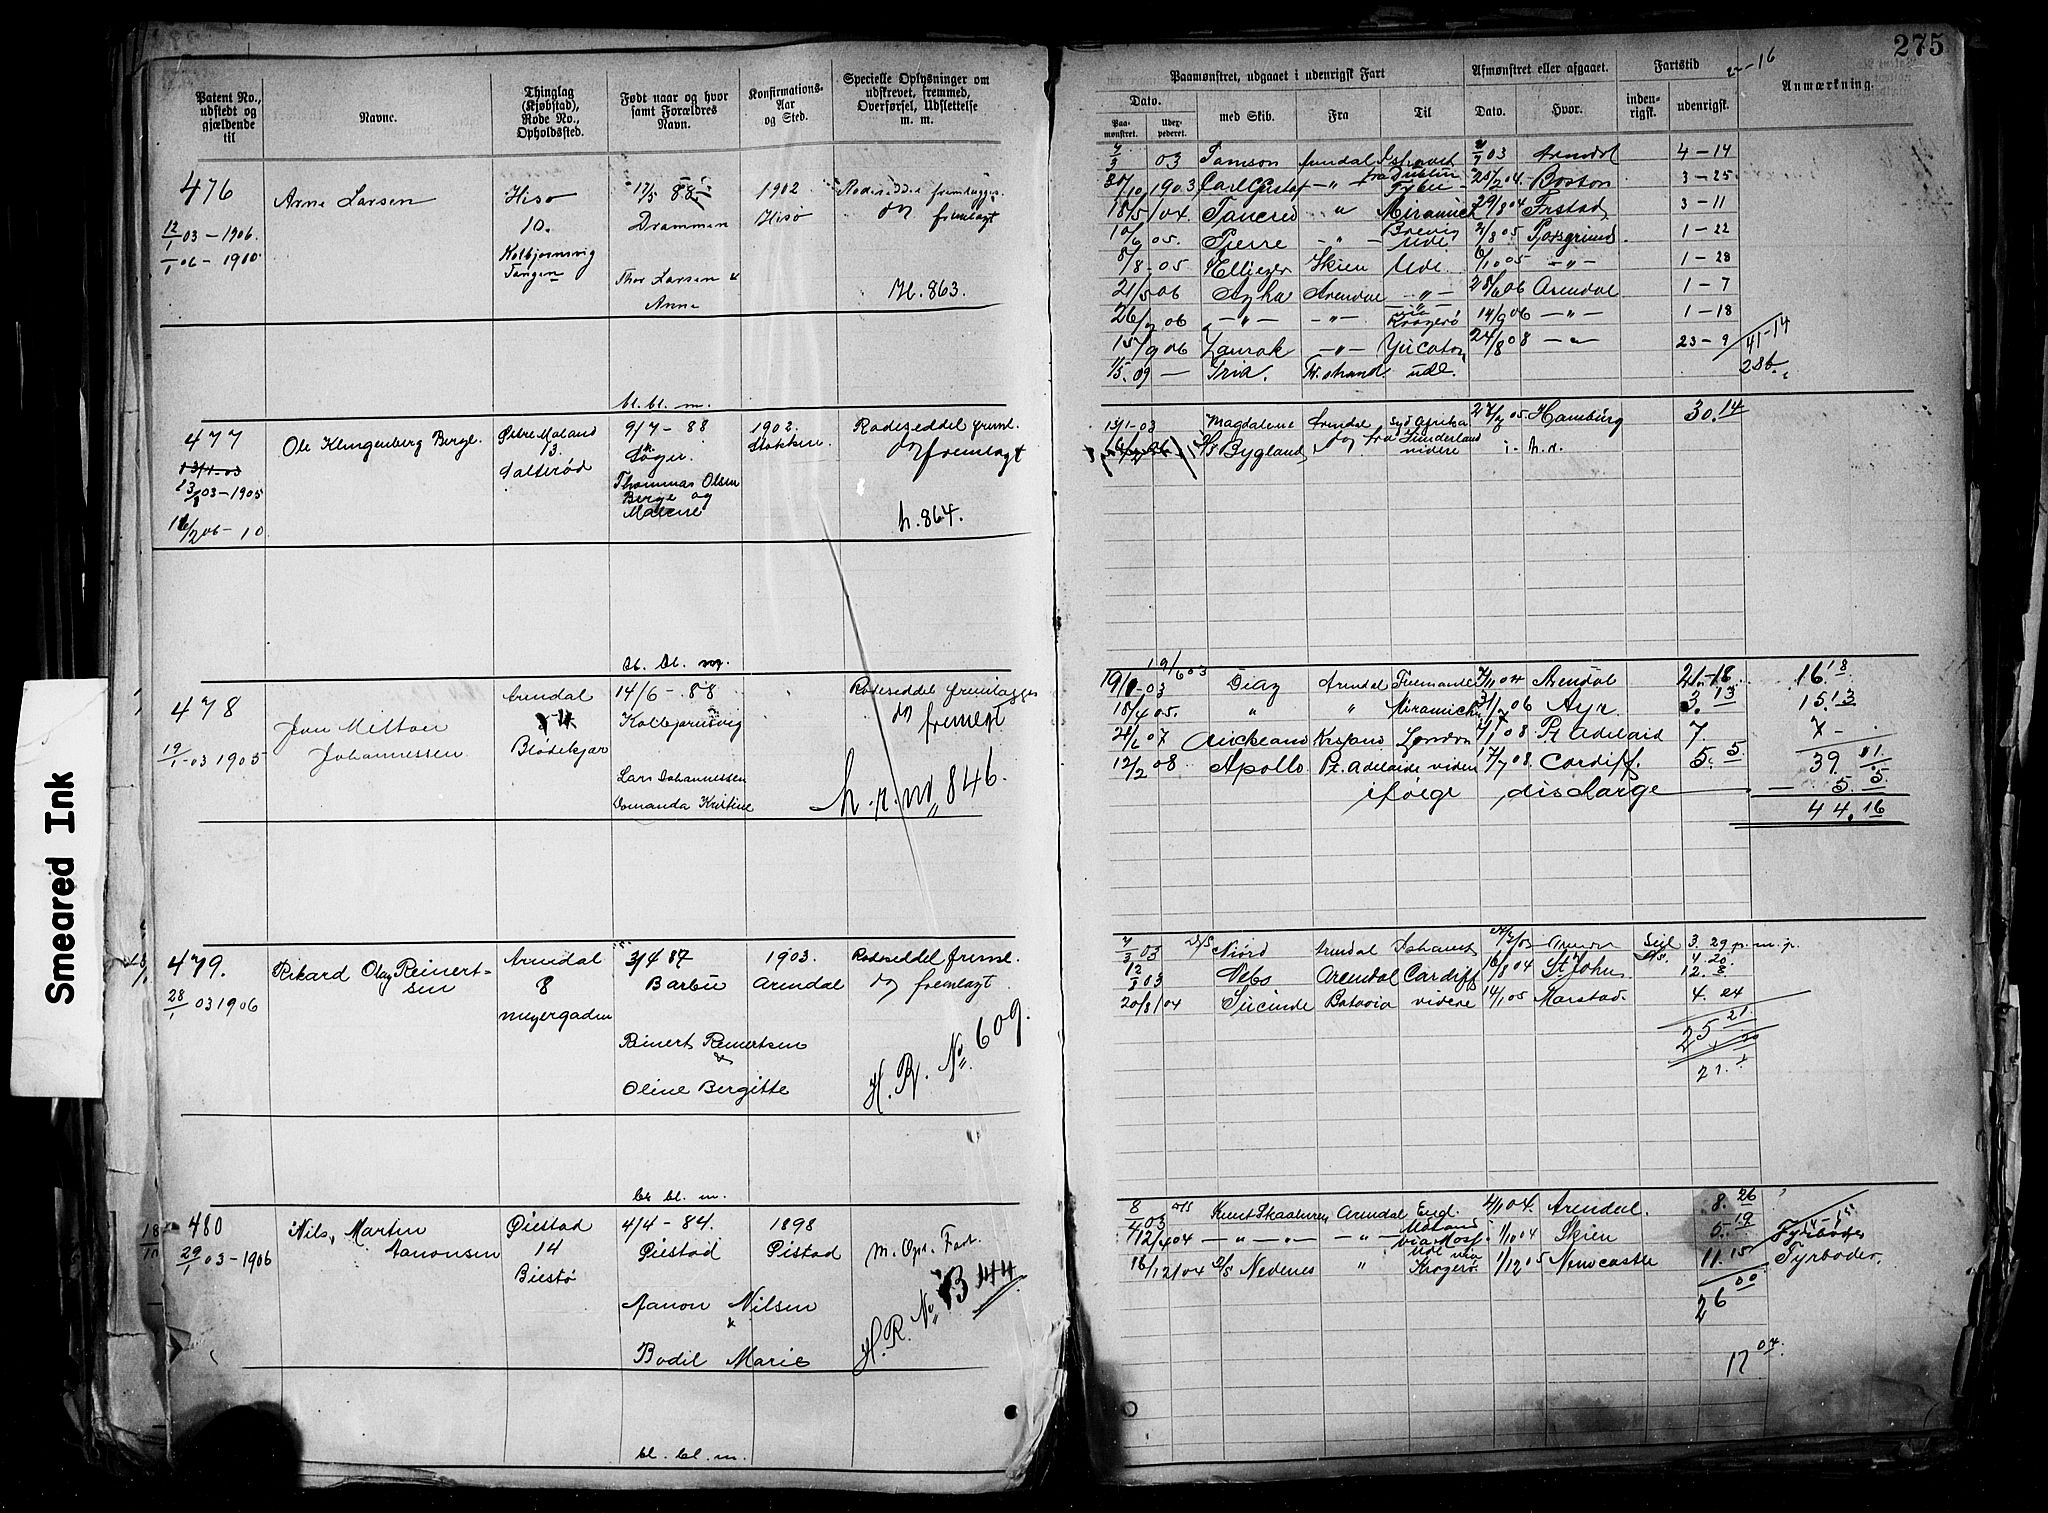 275
Patent No., udstedt og gjældende til
Navne.
Thinglag (Kjøbstad), Rode No., Opholdssted.
Født naar og hvor samt Forældres Navn.
Konfirmations-Aar og Sted.
Specielle Oplysninger om udskrevet, fremmed, Overførsel, Udslettelse m. m.
Paamønstret, udgaaet i udenrigsk Fart
Dato.
Paamønstret.
Udexpederet.
med Skib.
Fra
Til
Afmønstret eller afgaaet.
Dato.
Hvor.
Fartstid
indenrigsk.
udenrigsk.
Anmærkning.
476
12/1 03-1906.
1/1 06-1910.
Arne Larsen
Hisø
10.
Kolbjørnsvig
Tangen
17/5 88
Drammen
Thor Larsen &
Anna
1902
Hisø
Rodeseddel fremlægges.
do fremlagt
H. 863.
03 Samson Arendal Ishavet 03 Arendal 4-14
30/10 1903 Carl Gustaf -"- 25/2 04. Boston 3-25
18/5 04 Tancred " Miramich 29/8 04 Frstad 3-11
10/6 05. Pierre -"- Brevig Ude 2/8 05 Porsgrund 1-22
8/8-05 Skien Ude. 05 -"- 1-28
21/5 06 Ayha Arendal -"- 28/6 06 Arendal 1-7
26/7 06 -"- -"- Kragerø 14/9 06 -"- 1-18
15/9 06 -"- Yucaton 24/8 08 -"- 23-9 41-14
1/5. 09 - Iria. Fr.strand. ude. 286.
bl. bl. m.
477
13/1-03
23/8 03-1905
16/2 06-10
Ole Klingenberg Berge.
Østre Moland
13.
Salterød
9/7-88
Søgne.
Thommas Olsen
Berge og
Malene
1902.
Stokken
Rodeseddel freml.
do fremlagt
h. 864.
13/1-03 Magdalene Arendal Syd Afrika 27/7 05. Hamburg 30.14
16/2 06 D/S Bygland do fra Sunderland videre i. h. r.
bl. bl. m.
478
19/1-03 1905
Jean Milton
Johannessen
Arendal
4
Blødekjær
14/6-88
Kolbjørnsvig
Lars Johannessen
Amanda Kristine
Rodeseddel fremlægges
do fremlegt
h. r. no 846.
19/6 03
19/1-03 Diaz Arendal Fremantle 04 Arendal 21-18 16.18
18/4 05. " " Miramichi 31/7 06 Ayr. 3.13 15.13
21/6 07 Auckland Krsand London 1/1 08 Pt Adelaid 7. 7-.
12/2 08 Apollo. Pt. Adelaide videre 17/7 08. Cardiff. 5.5 39.01
ifølge discharge 5.5
44.16
479.
28/1 03 1906
Rikard Olaf Reinertsen
Arendal
8
Meyergaden
3/4 87
Barbu
Reinert Reinertsen
&
Oline Bergitte
1903.
Arendal
Rodeseddel freml.
do fremlagt.
H. R. No. 609.
7/3 03 D/S Njord Arendal Ishavet 03 Arendal Seil 3. 29 p. m. p.
4. 20
12/8 03 Nebo Arendal Cardiff 16/8 04 St. John 12. 8.
20/8 04 Sucinde Batavia videre 14/1 05 Marstad. 4. 24
25. 21.
21.
bl. bl. m.
480
29/1 03-1906
Nils, Martin
Aanonsen
Øiestad
14
Biestø
4/4-84.
Øiestad
Aanon Nilsen
&
Bodil Marie
1898
Øistad
m. Opl. Fart.
H. R. No. B 144
8/4 03 D/S Knut Skaaluren Arendal Eng. 4/1 04. Arendal. 8. 26
12/4 04 -"-"- -"- via Moss 1/10 04 Skien 5. 19 Fyrbøder
16/12 04 D/S Nedenes " Ude via Kragerø. 1/12 05 Newcastle 11. 15 Fyrbøder.
26 00
17 04.
bl. bl. m.
Smeared Ink